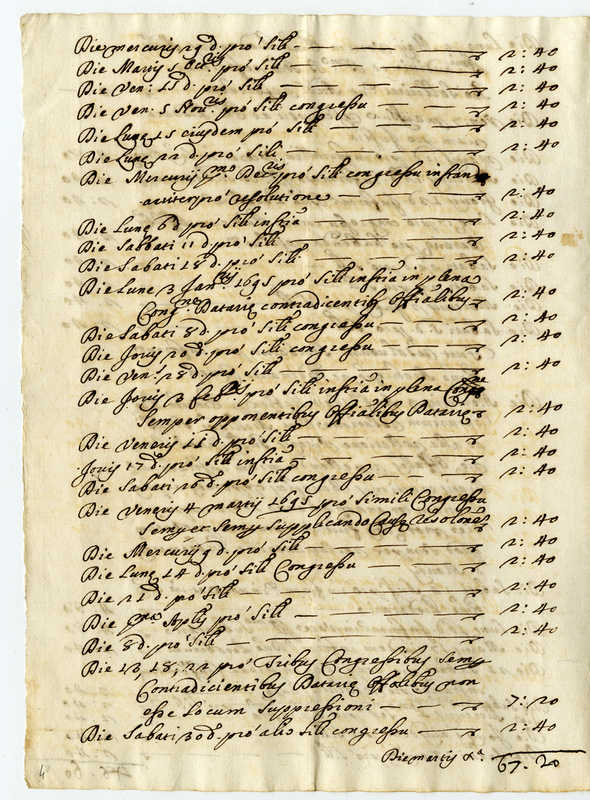 Die mercurij 29 d. pro Sili — 2: 40
Die Martis 5 8bris pro Sili — 2: 40
Die Ven: 15 d. pro Sili — 2: 40
Die Ven. 5 Nouris pro Sili congressu — 2: 40
Die Lune 15 eiusdem pro Sili — 2: 40
Die Lune 22 d. pro Sili — 2: 40
Die Mercurij pma Decris pro Sili congressu instando
pro resolutione — 2: 40
Die Lune 6 d. pro Sili instia — 2: 40
Die Sabbati 11 d. pro Sili — 2: 40
Die Sabati 18 d. pro Sili — 2: 40
Die Lune 3 Janrij 1695 pro Sili instia in plena
Congne Datarie contradicentibs Offialibus — 2: 40
Die Sabati 8 d. pro Sili congressu — 2: 40
Die Jouis 20 d. pro Sili congressu — 2: 40
Die Ven: 28 d. pro Sili — 2: 40
Die Jouis 3 Febris pro Sili instia in plena Congne
Semper opponentibus Offialibus Datarie — 2: 40
Die Veneris 11 d. pro Sili — 2: 40
Jouis 17 d. pro Sili instia — 2: 40
Die Sabati 26 d. pro Sili congressu — 2: 40
Die Veneris 4 martij 1695 pro Simili Congressu
Semp et Semp Supplicando Cause resolonem — 2: 40
Die Mercurij 9 d. pro Sili — 2: 40
Die Lune 14 d. pro Sili Congressu — 2: 40
Die 21 d. pro Sili — 2: 40
Die pma Aplis pro Sili — 2: 40
Die 8 d. pro Sili — 2: 40
Die 13, 18, 22 pro Tribus Congressibus Semp
Contradicientibus Datarie Offialibus non
esse Locum Suppressioni — 7: 20
Die Sabati 30 d. pro alio Sili congressu — 2: 40
Die martis &a. 67. 20